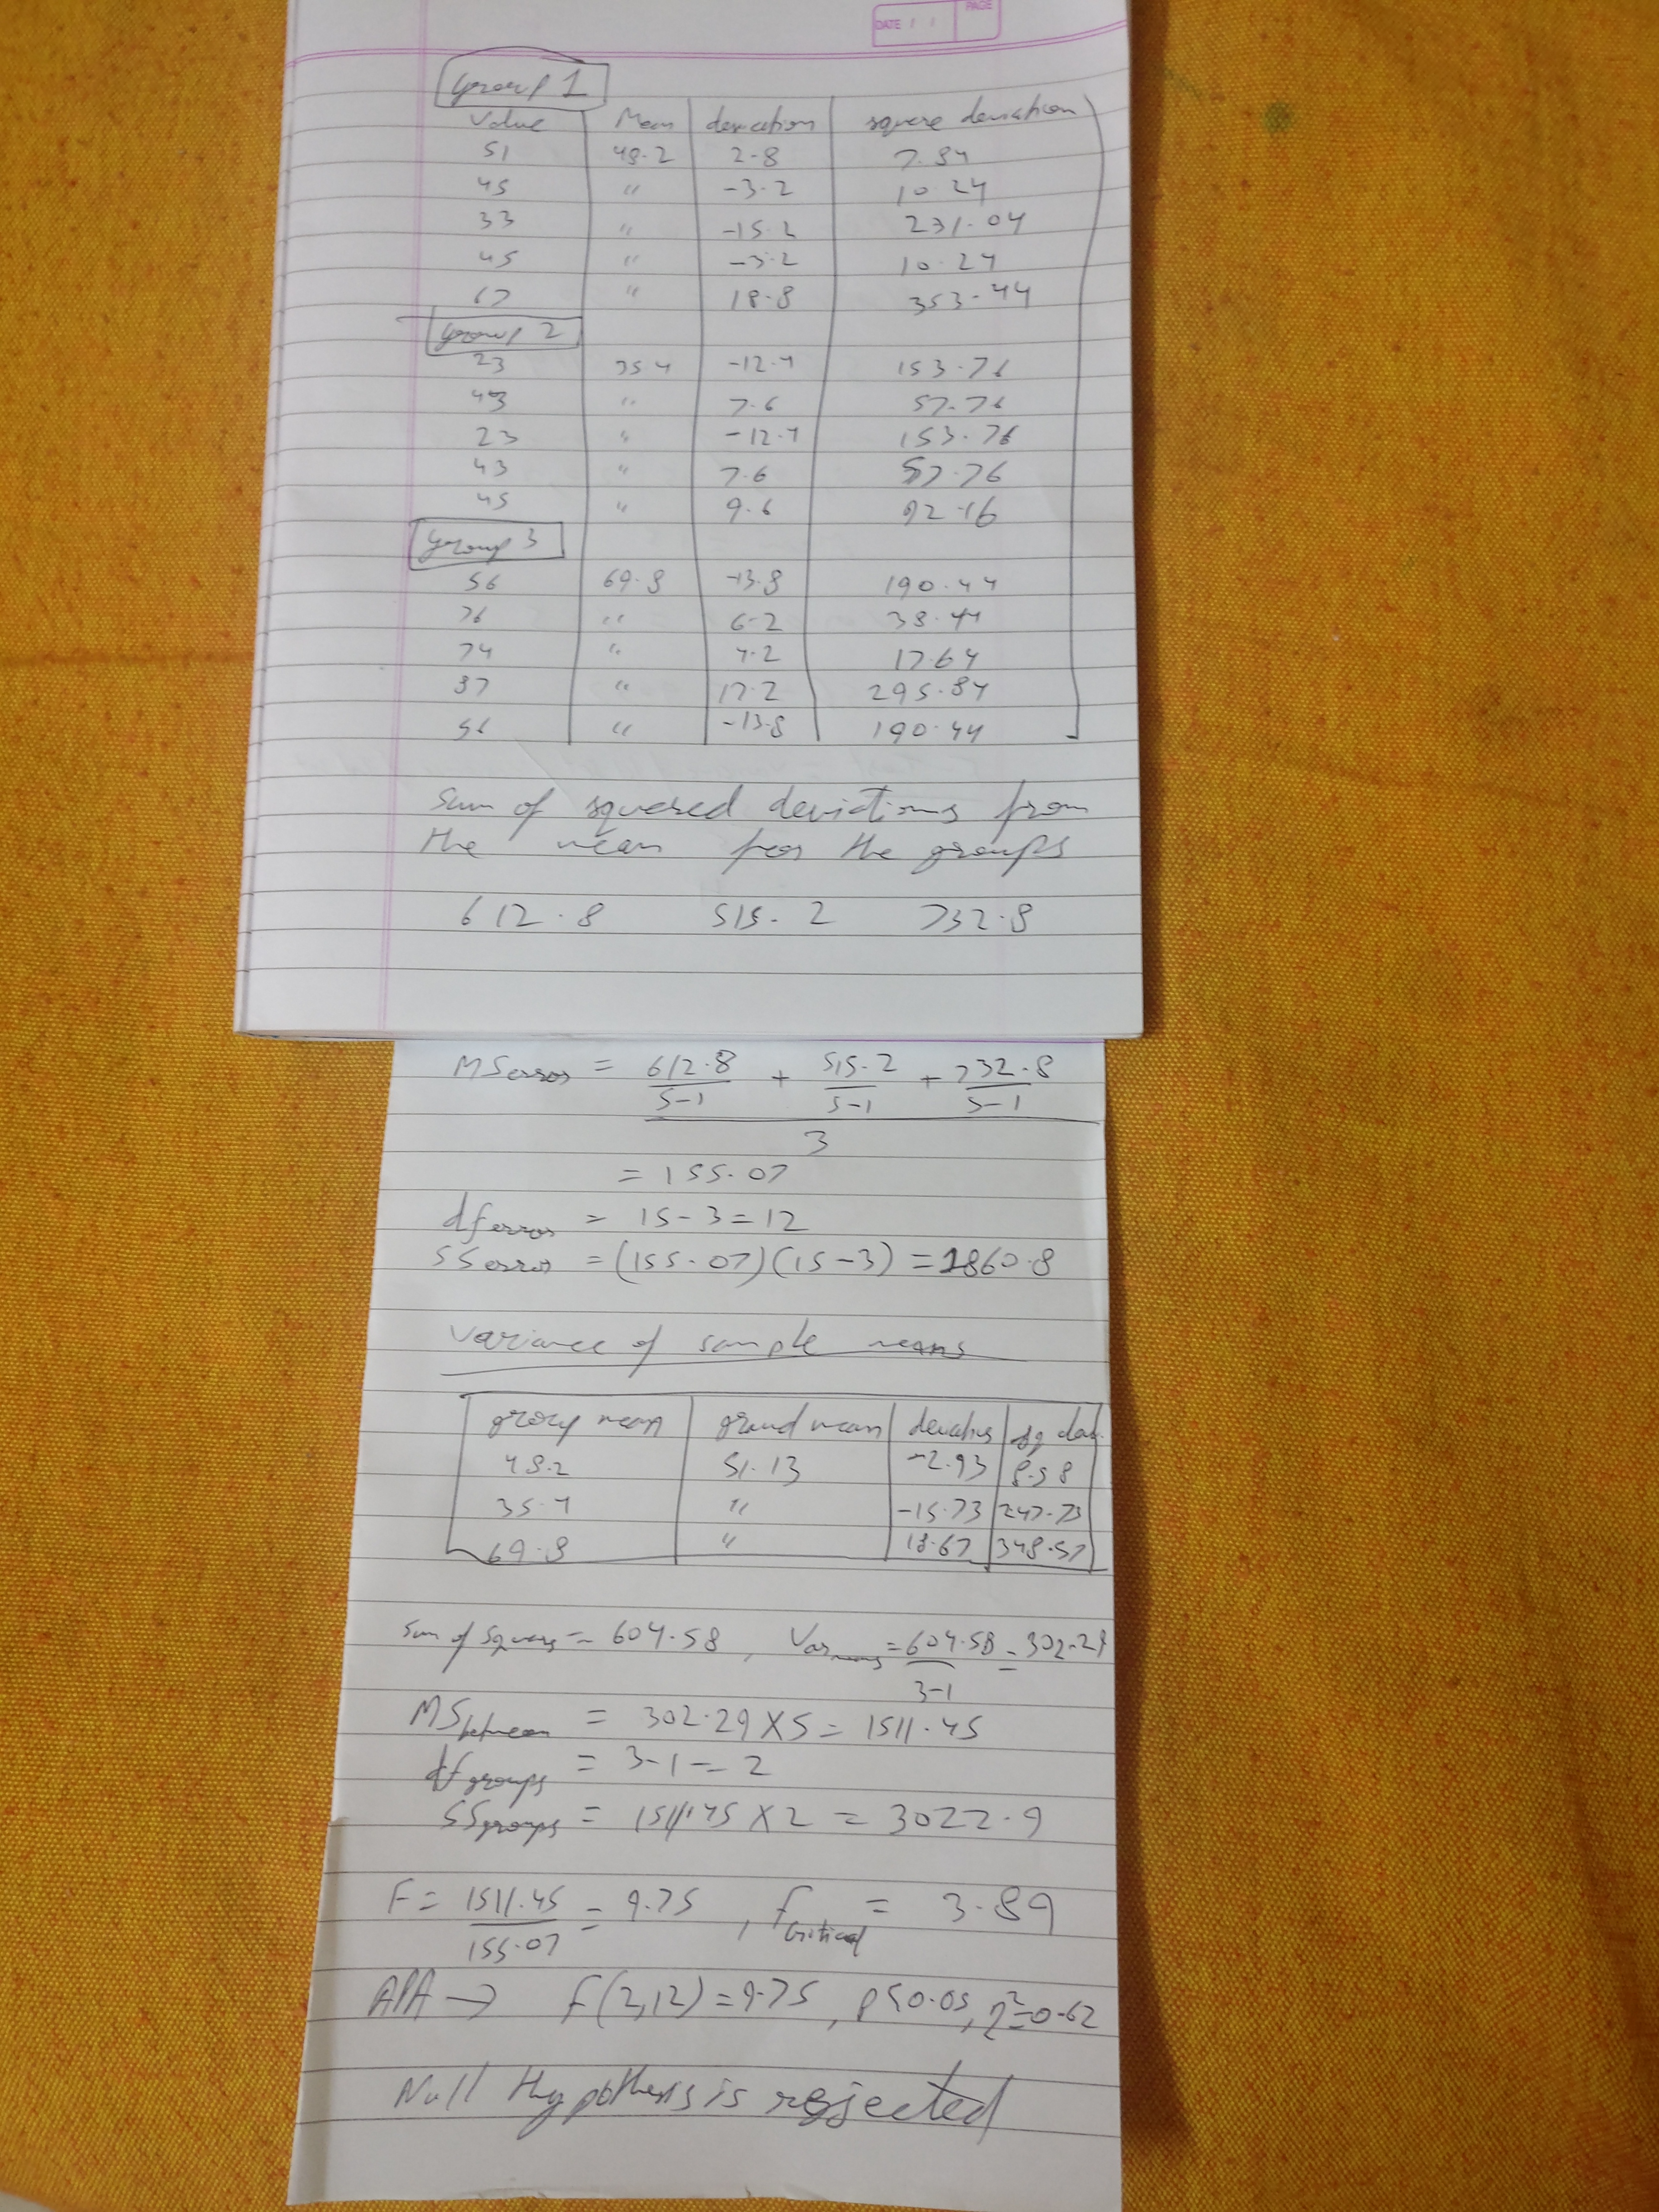 DATE / / PAGE
Group 1
Value Mean deviation square deviation
51 48.2 2.8 7.84
45 " -3.2 10.24
33 " -15.2 231.04
45 " -3.2 10.24
67 " 18.8 353.44
Group 2
23 35.4 -12.4 153.76
43 " 7.6 57.76
23 " -12.4 153.76
43 " 7.6 57.76
45 " 9.6 92.16
Group 3
56 69.8 -13.8 190.44
76 " 6.2 38.44
74 " 4.2 17.64
87 " 17.2 295.84
56 " -13.8 190.44
Sum of squared deviations from
the mean for the groups
612.8 515.2 732.8
MSerror = 612.8 + 515.2 + 732.8
5-1 5-1 5-1
3
= 155.07
dferror = 15-3=12
SSerror = (155.07)(15-3) = 1860.8
Variance of sample means
group mean grand mean deviations sq dev.
48.2 51.13 -2.93 8.58
35.4 " -15.73 247.73
69.8 " 18.67 348.57
Sum of squares = 604.58, Varmeans = 604.58 = 302.29
3-1
MSbetween = 302.29 X 5 = 1511.45
dfgroups = 3-1 = 2
SSgroups = 1511.45 X 2 = 3022.9
F = 1511.45 = 9.75, fcritical = 3.89
155.07
APA → F(2,12) = 9.75, p<0.05, η²=0.62
Null Hypothesis is rejected